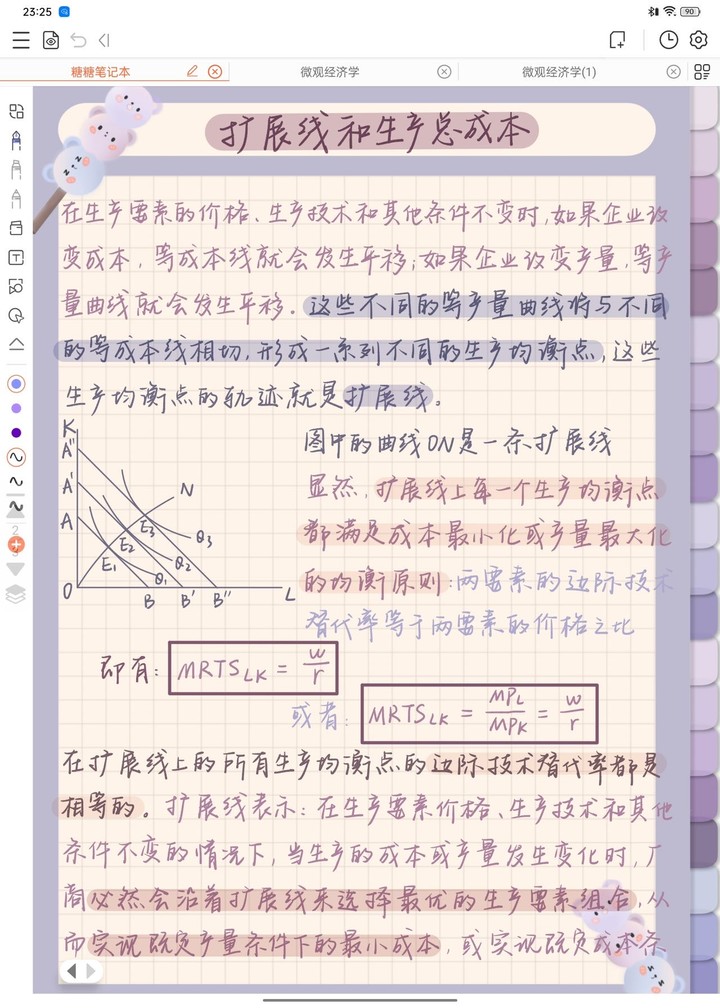 23:25
90
糖糖笔记本
微观经济学
微观经济学(1)
扩展线和生产总成本
在生产要素的价格、生产技术和其他条件不变时,如果企业改
变成本,等成本线就会发生平移;如果企业改变产量,等产
量曲线就会发生平移。这些不同的等产量曲线将与不同
的等成本线相切,形成一系列不同的生产均衡点,这些
生产均衡点的轨迹就是扩展线。
K
A"
A'
A
O
E₁
E₂
E₃
N
Q₁
Q₂
Q₃
B
B'
B"
L
图中的曲线ON是一条扩展线
显然,扩展线上每一个生产均衡点
都满足成本最小化或产量最大化
的均衡原则:两要素的边际技术
替代率等于两要素的价格之比
即有: MRTS_LK = w/r
或者: MRTS_LK = MP_L/MP_K = w/r
在扩展线上的所有生产均衡点的边际技术替代率都是
相等的。扩展线表示:在生产要素价格、生产技术和其他
条件不变的情况下,当生产的成本或产量发生变化时,厂
商必然会沿着扩展线来选择最优的生产要素组合,从
而实现既定产量条件下的最小成本,或实现既定成本条